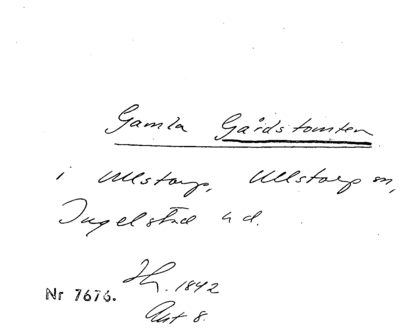 Gamla Gårdstomten
i Ullstorp, Ullstorp sn,
Ingelstad hd.
Hg. 1842
Nr 7676.
Akt 8.